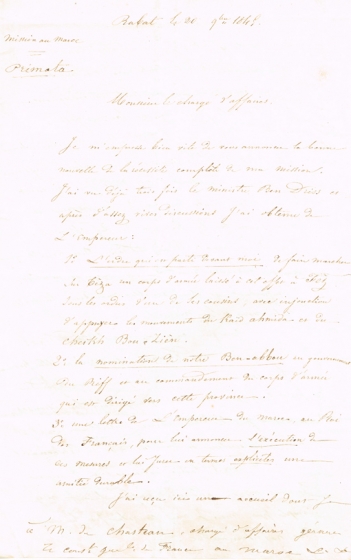 Rabat le 20 9bre 184
Mission au maroc
Primata.
Monsieur le chargé d'affaires.
Je m'empresse bien vite de vous annoncer la bonne
nouvelle de la réussite complète de ma mission.
J'ai vu déjà trois fois le ministre Ben Driss et
après d'assez vives discussions J'ai obtenu de
L'Empereur:
1° L'ordre qui en partie devant moi de faire marcher
sur un corps d'armée laissé à cet effet à
sous les ordres d'un de ses cousins, avec injonction
d'appuyer les mouvements du Kaid ahmed et du
cheikh Bou Zian.
2° la nomination de notre Bou abbou en
du Riff et au commandement du corps d'armée
qui se dirige vers cette province.
3° une lettre de L'Empereur du maroc au Roi
des Français, pour lui annoncer l'exécution de
ces mesures et lui Jurer en termes explicites une
amitié durable.
J'ai reçu ici un accueil dont Je
à M. de chasteau, chargé d'affaires gérant
le consulat de France au maroc